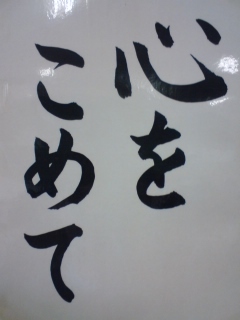 心を
こめて